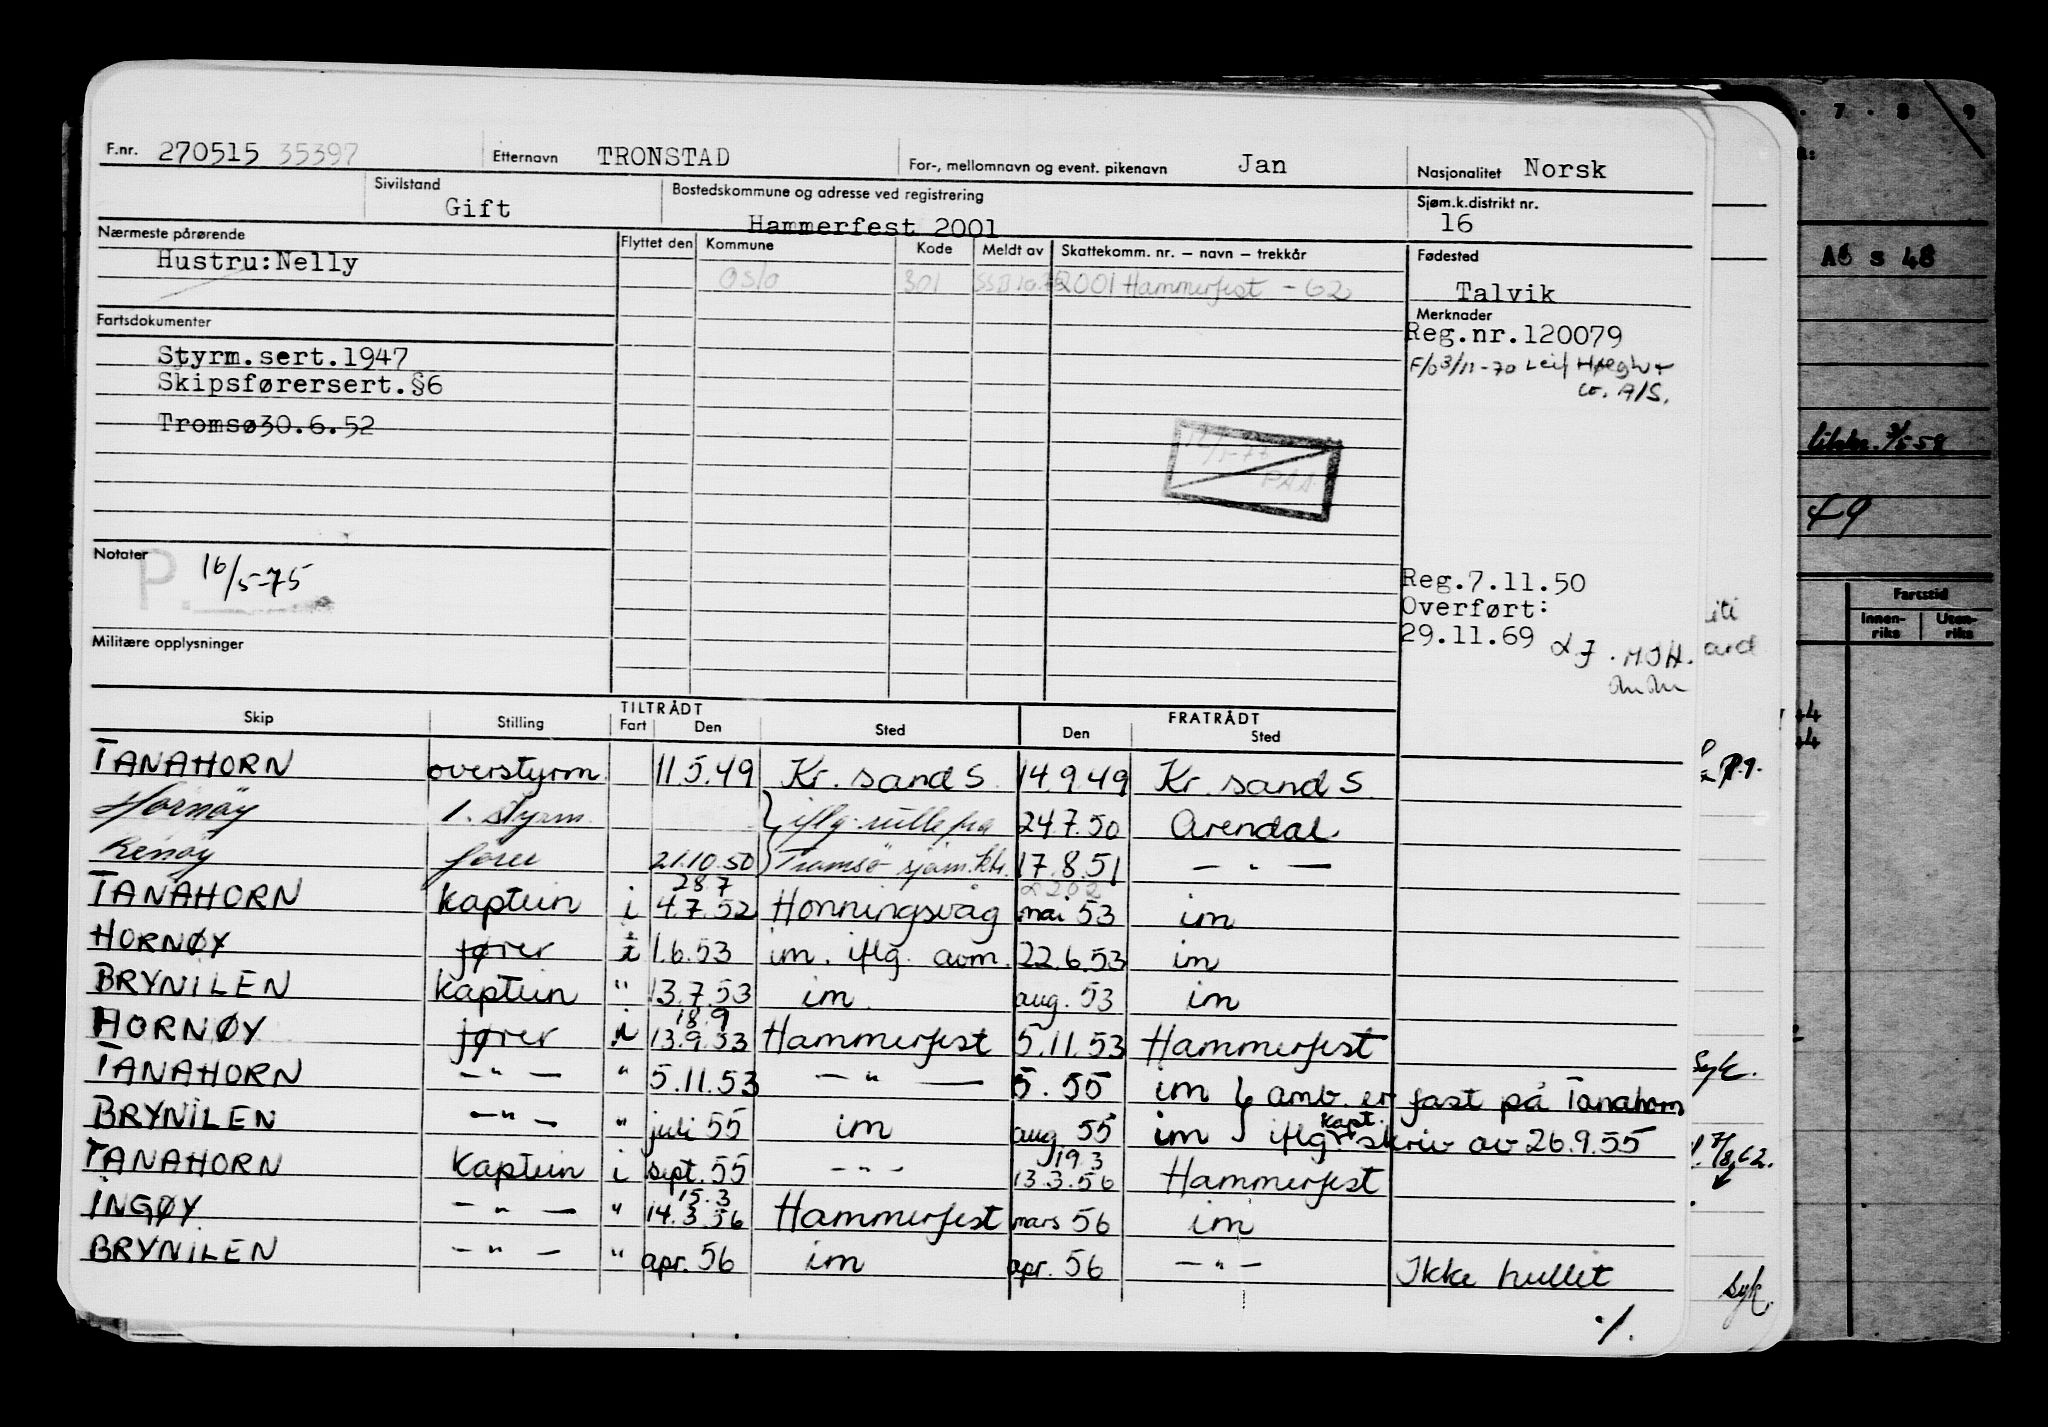 F.nr. 270515 35397 Etternavn TRONSTAD For-, mellomnavn og event. pikenavn Jan Nasjonalitet Norsk
Sivilstand Gift Bostedskommune og adresse ved registrering Hammerfest 2001 Sjøm.k.distrikt nr. 16
Nærmeste pårørende Flyttet den Kommune Kode Meldt av Skattekomm. nr. – navn – trekkår Fødested
Hustru:Nelly Oslo 301 2001 Hammerfest - 62 Talvik
Fartsdokumenter Merknader
Reg.nr.120079
Styrm.sert.1947 F/o 3/11-70 Leif Høegh +
Skipsførersert.§6 Co. A/S.
Tromsø30.6.52
PAA
Notater
P. 16/5-75
Reg.7.11.50
Overført:
29.11.69
Militære opplysninger
TILTRÅDT FRATRÅDT
Skip Stilling Fart Den Sted Den Sted
TANAHORN overstyrm. 11.5.49 Kr. sand S. 14.9.49 Kr. sand S.
Hornøy 1. styrm. } iflg. rulle fra 24.7.50 Arendal
Renøy fører 21.10.50 Tromsø sjøm.ktr. 17.8.51 — " —
28 7
TANAHORN kaptein i 4.7.52 Honningsvåg mai 53 im
HORNØY fører i 1.6.53 im. iflg. aom. 22.6.53 im
BRYNILEN kaptein " 13.7.53 im. aug. 53 im
18.9
HORNØY fører i 13.9.53 Hammerfest 5.11.53 Hammerfest
TANAHORN — " — " 5.11.53 — " — 5. 55 im } amb. er fast på Tanahorn
BRYNILEN — " — " juli 55 im aug 55 im } iflg. kapt. skriv av 26.9.55
19.3
TANAHORN kaptein i sept. 55 — " — 13.3.56 Hammerfest
15.3
INGØY — " — " 14.3.56 Hammerfest mars 56 im
BRYNILEN — " — " apr. 56 im apr. 56 — " — Ikke hullet
./.
7 . 8 9
A6 s 48
49
Fartstid
Innen-riks Uten-riks
44
44
Syk.
syk.